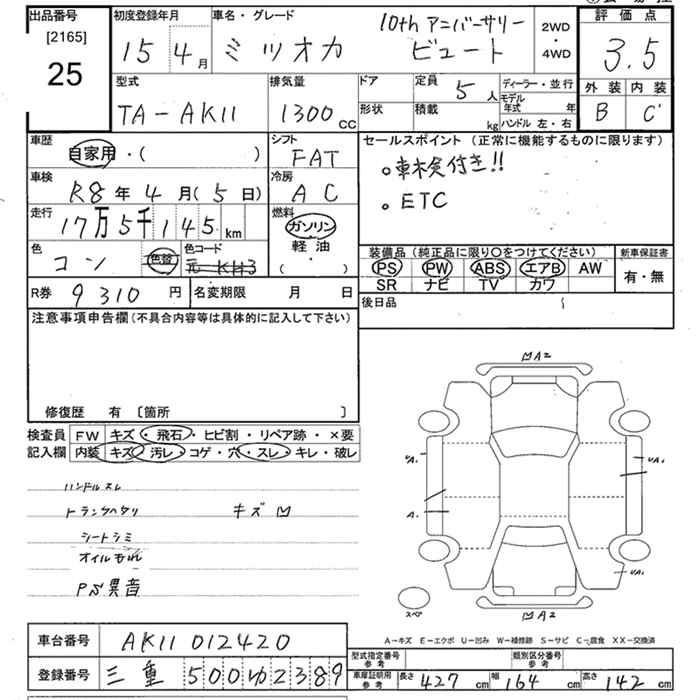 出品番号 初度登録年月 車名・グレード 2WD ・ 4WD 評価点
[2165]
25 15 4月 ミツオカ 10th アニバーサリー ビュート 3.5
型式 排気量 ドア 定員 5人 ディーラー・並行 外装 内装
TA-AK11 1300CC 形状 積載 kg モデル年式 年 B C
ハンドル 左・右
車歴 自家用・( ) シフト FAT セールスポイント (正常に機能するものに限ります)
車検 R8年4月(5日) 冷房 AC 。車検付き!!
走行 17万5千145km 燃料 ガソリン 軽油 ( ) 。ETC
色 コン 色替 色コード 元 KH3 装備品(純正品に限り〇をつけてください) 新車保証書
PS PW ABS エアB AW 有・無
SR ナビ TV カワ
R券 9310円 名変期限 月 日 後日品
注意事項申告欄(不具合内容等は具体的に記入して下さい)
修復歴 有 〔箇所 〕
検査員 FW キズ・飛石・ヒビ割・リペア跡・×要
記入欄 内装 キズ・汚レ・コゲ・穴・スレ・キレ・破レ
ハンドルスレ
キズ
シートシミ
オイルもれ
PS異音
A2
A.
A2
スペア
A-キズ E-エクボ U-凹み W-補修跡 S-サビ C-腐食 XX-交換済
車台番号 AK11 012420 型式指定番号 参考 類別区分番号 参考
登録番号 三重 500ゆ2389 車庫証明用 参考 長さ 427cm 幅 164cm 高さ 142cm